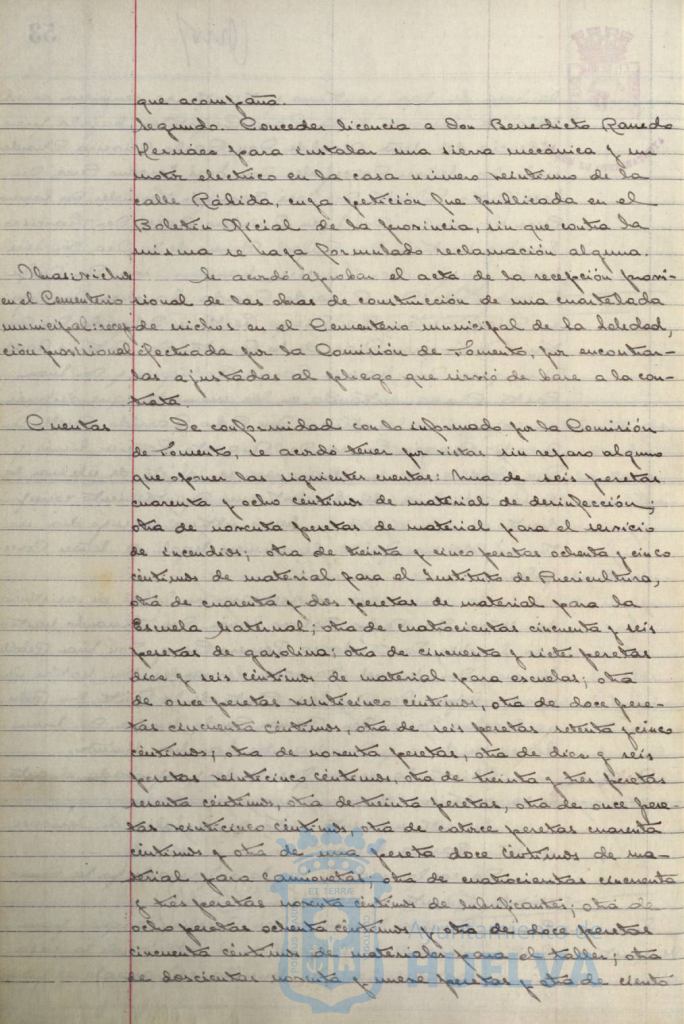 que acompaña.
Segundo. Conceder licencia a Don Benedicto Ranedo
Hernáez para instalar una sierra mecánica y un
motor electrico en la casa número veintiuno de la
calle Rábida, cuya petición fue publicada en el
Boletín Oficial de la provincia, sin que contra la
misma se haya formulado reclamación alguna.
Obras: nichos
en el Cementerio
municipal: recep-
ción provisional
Se acordó aprobar el acta de la recepción provi-
sional de las obras de construcción de una cuartelada
de nichos en el Cementerio municipal de la Soledad,
efectuada por la Comisión de Fomento, por encontrar-
las ajustadas al pliego que sirvió de base a la con-
trata.
Cuentas
De conformidad con lo informado por la Comisión
de Fomento, se acordó tener por vistas sin reparo alguno
que oponer las siguientes cuentas: Una de seis pesetas
cuarenta y ocho céntimos de material de desinfección;
otra de noventa pesetas de material para el servicio
de incendios; otra de treinta y cinco pesetas ochenta y cinco
céntimos de material para el Instituto de Puericultura,
otra de cuarenta y dos pesetas de material para la
Escuela Maternal; otra de cuatrocientas cincuenta y seis
pesetas de gasolina; otra de cincuenta y siete pesetas
diez y seis céntimos de material para escuelas; otra
de once pesetas veinticinco céntimos, otra de doce pese-
tas cincuenta céntimos, otra de seis pesetas setenta y cinco
céntimos; otra de noventa pesetas, otra de diez y seis
pesetas veinticinco céntimos, otra de treinta y tres pesetas
sesenta céntimos, otra de treinta pesetas, otra de once pese-
tas veinticinco céntimos, otra de catorce pesetas cuarenta
céntimos y otra de una peseta doce céntimos de ma-
terial para camionetas; otra de cuatrocientas cincuenta
y tres pesetas noventa céntimos de lubrificantes; otra de
ocho pesetas ochenta céntimos y otra de doce pesetas
cincuenta céntimos de materiales para el taller; otra
de doscientas noventa y nueve pesetas y otra de ciento
Ayuntamiento
HUELVA